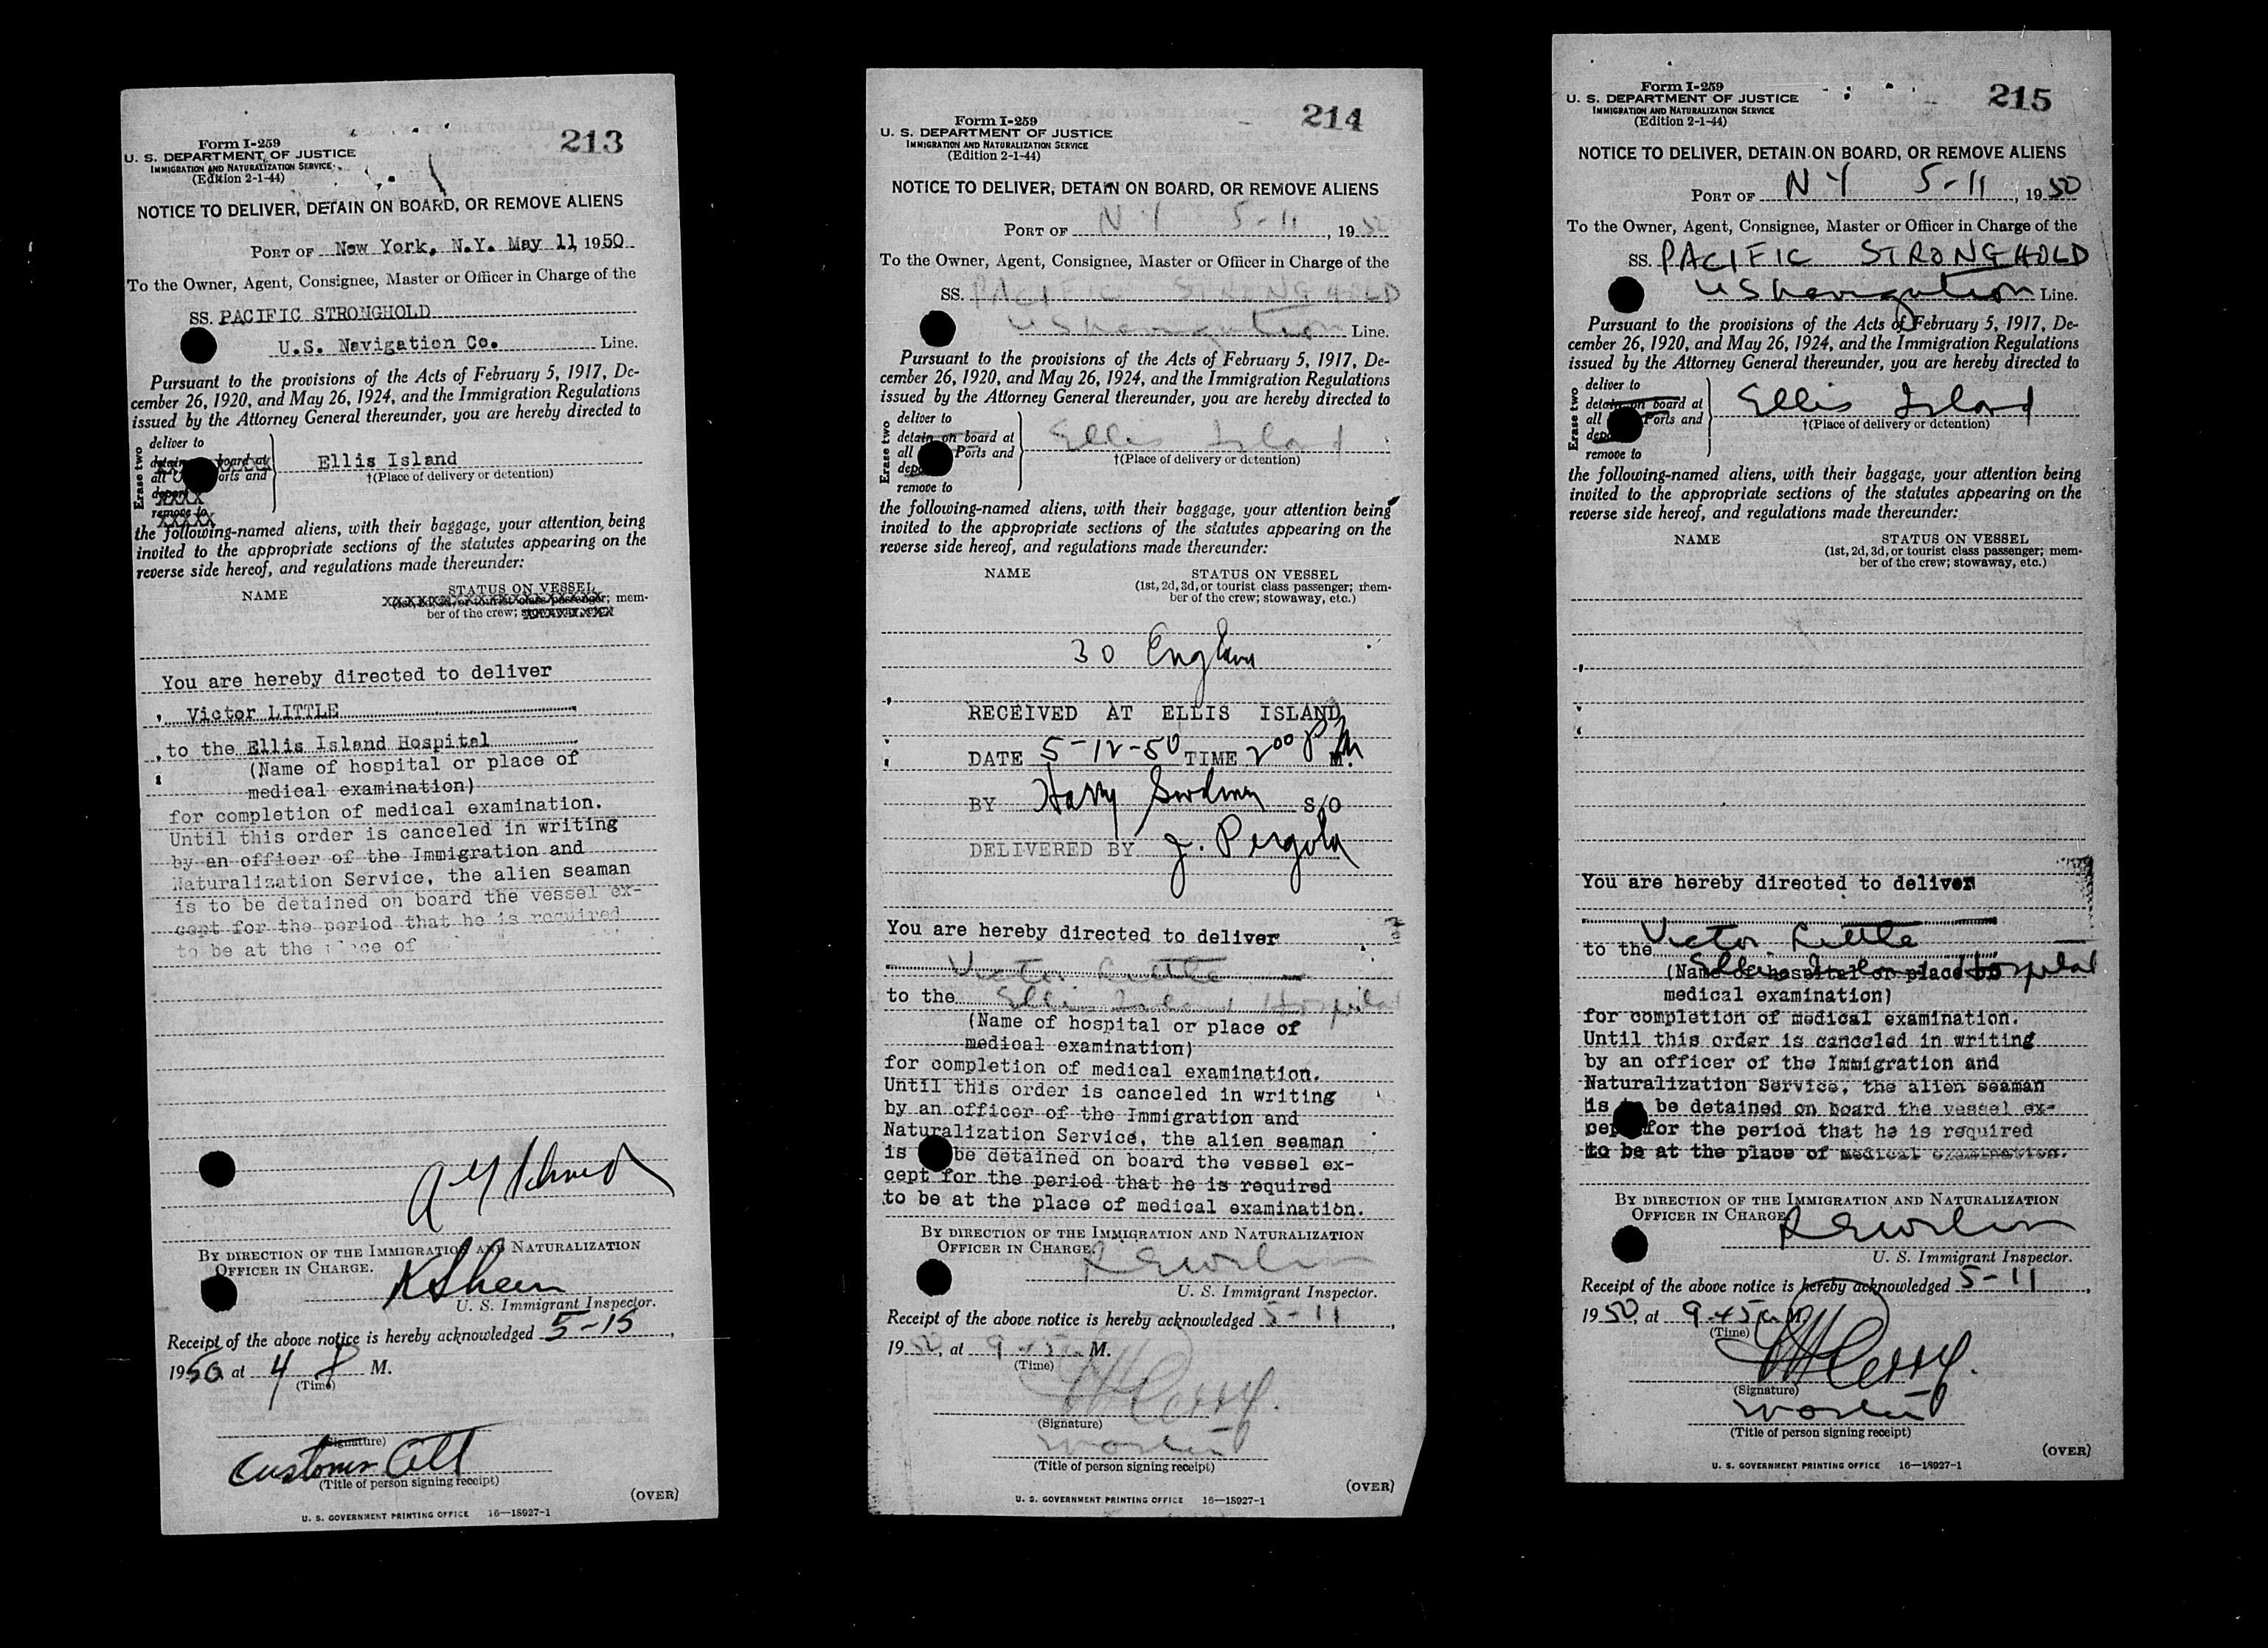 213
Form I-259
U. S. DEPARTMENT OF JUSTICE
IMMIGRATION AND NATURALIZATION SERVICE
(Edition 2-1-44)
NOTICE TO DELIVER, DETAIN ON BOARD, OR REMOVE ALIENS
PORT OF New York, N.Y. May 11, 1950
To the Owner, Agent, Consignee, Master or Officer in Charge of the
SS. PACIFIC STRONGHOLD
U.S. Navigation Co. Line.
Pursuant to the provisions of the Acts of February 5, 1917, De-
cember 26, 1920, and May 26, 1924, and the Immigration Regulations
issued by the Attorney General thereunder, you are hereby directed to
Erase two
deliver to
detain board at
all orts and
deport
remove to
Ellis Island
†(Place of delivery or detention)
the following-named aliens, with their baggage, your attention being
invited to the appropriate sections of the statutes appearing on the
reverse side hereof, and regulations made thereunder:
NAME STATUS ON VESSEL
(1st, 2d, 3d, or tourist class passenger; mem-
ber of the crew; stowaway, etc.)
You are hereby directed to deliver
Victor LITTLE
to the Ellis Island Hospital
(Name of hospital or place of
medical examination)
for completion of medical examination.
Until this order is canceled in writing
by an officer of the Immigration and
Naturalization Service, the alien seaman
is to be detained on board the vessel ex-
cept for the period that he is required
to be at the place of
BY DIRECTION OF THE IMMIGRATION AND NATURALIZATION
OFFICER IN CHARGE.
U. S. Immigrant Inspector.
Receipt of the above notice is hereby acknowledged 5-15,
1950 at 4 P M.
(Time)
(Signature)
Customer Att
(Title of person signing receipt)
(OVER)
U. S. GOVERNMENT PRINTING OFFICE 16—18927-1
214
Form I-259
U. S. DEPARTMENT OF JUSTICE
IMMIGRATION AND NATURALIZATION SERVICE
(Edition 2-1-44)
NOTICE TO DELIVER, DETAIN ON BOARD, OR REMOVE ALIENS
PORT OF N Y 5-11, 1950
To the Owner, Agent, Consignee, Master or Officer in Charge of the
SS. PACIFIC STRONGHOLD
US Navigation Line.
Pursuant to the provisions of the Acts of February 5, 1917, De-
cember 26, 1920, and May 26, 1924, and the Immigration Regulations
issued by the Attorney General thereunder, you are hereby directed to
Erase two
deliver to
detain on board at
all Ports and
depo
remove to
Ellis Island
†(Place of delivery or detention)
the following-named aliens, with their baggage, your attention being
invited to the appropriate sections of the statutes appearing on the
reverse side hereof, and regulations made thereunder:
NAME STATUS ON VESSEL
(1st, 2d, 3d, or tourist class passenger; mem-
ber of the crew; stowaway, etc.)
30
RECEIVED AT ELLIS ISLAND
DATE 5-12-50 TIME 2 00 PM M.
BY Harry S/O
DELIVERED BY J. Pergola
You are hereby directed to deliver
Victor Little
to the Ellis Island Hospital
(Name of hospital or place of
medical examination)
for completion of medical examination.
Until this order is canceled in writing
by an officer of the Immigration and
Naturalization Service, the alien seaman
is be detained on board the vessel ex-
cept for the period that he is required
to be at the place of medical examination.
BY DIRECTION OF THE IMMIGRATION AND NATURALIZATION
OFFICER IN CHARGE.
U. S. Immigrant Inspector.
Receipt of the above notice is hereby acknowledged 5-11,
1950, at 9 45 a M.
(Time)
(Signature)
(Title of person signing receipt)
(OVER)
U. S. GOVERNMENT PRINTING OFFICE 16—18927-1
215
Form I-259
U. S. DEPARTMENT OF JUSTICE
IMMIGRATION AND NATURALIZATION SERVICE
(Edition 2-1-44)
NOTICE TO DELIVER, DETAIN ON BOARD, OR REMOVE ALIENS
PORT OF N Y 5-11, 1950
To the Owner, Agent, Consignee, Master or Officer in Charge of the
SS. PACIFIC STRONGHOLD
US Navigation Line.
Pursuant to the provisions of the Acts of February 5, 1917, De-
cember 26, 1920, and May 26, 1924, and the Immigration Regulations
issued by the Attorney General thereunder, you are hereby directed to
Erase two
deliver to
detain on board at
all Ports and
depo
remove to
Ellis Island
†(Place of delivery or detention)
the following-named aliens, with their baggage, your attention being
invited to the appropriate sections of the statutes appearing on the
reverse side hereof, and regulations made thereunder:
NAME STATUS ON VESSEL
(1st, 2d, 3d, or tourist class passenger; mem-
ber of the crew; stowaway, etc.)
You are hereby directed to deliver
Victor Little
to the
Ellis Island Hospital
(Name of hospital or place of
medical examination)
for completion of medical examination.
Until this order is canceled in writing
by an officer of the Immigration and
Naturalization Service, the alien seaman
is to be detained on board the vessel ex-
cept for the period that he is required
to be at the place of medical examination.
BY DIRECTION OF THE IMMIGRATION AND NATURALIZATION
OFFICER IN CHARGE.
U. S. Immigrant Inspector.
Receipt of the above notice is hereby acknowledged 5-11,
1950, at 9 45 a M.
(Time)
(Signature)
(Title of person signing receipt)
(OVER)
U. S. GOVERNMENT PRINTING OFFICE 16—18927-1